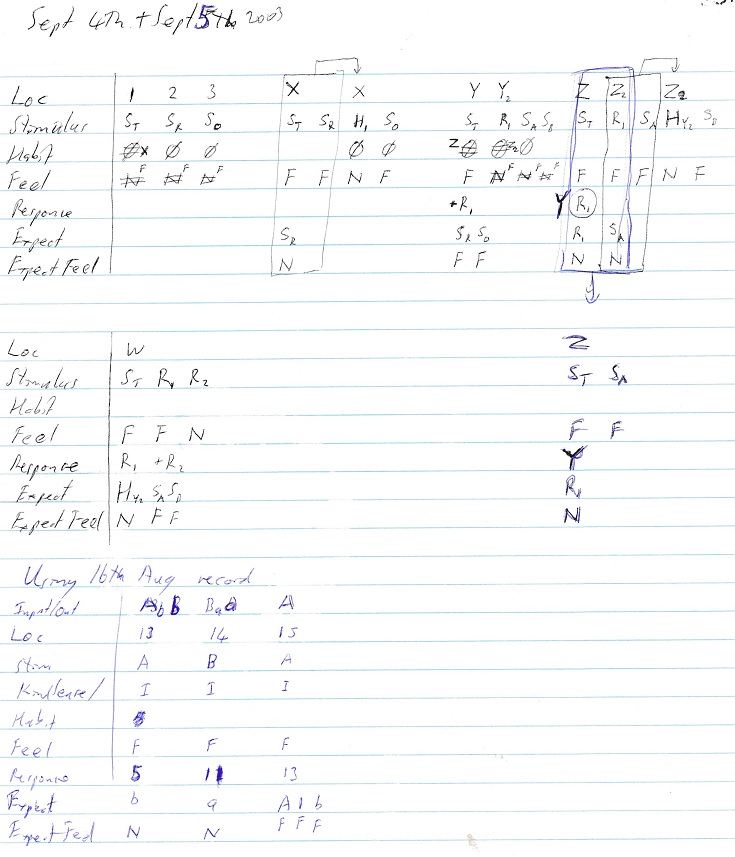 Sept 4th + Sept 5th 2003
Loc 1 2 3 X X Y Y2 Z Z2 Z2
Stimulus ST SR SO ST SR H1 SO ST R1 SA SD ST R1 SA HY2 SD
Habit ØX Ø Ø Ø Ø Z Z2 Ø
Feel N F N F N F F F N F F N F N F N F F F F N F
Response +R1 Y R1
Expect SR SA SO R1 SA
Expect Feel N F F N N
Loc W Z
Stimulus ST R1 R2 ST SA
Habit
Feel F F N F F
Response R1 +R2 Y
Expect HY2 SA SD R1
Expect Feel N F F N
Using 16th Aug record
Input/Out AbB Baa A
Loc 13 14 15
Stim A B A
Kind/ I I I
Habit
Feel F F F
Response 5 11 13
Expect b a A 1 b
Expect Feel N N F F F